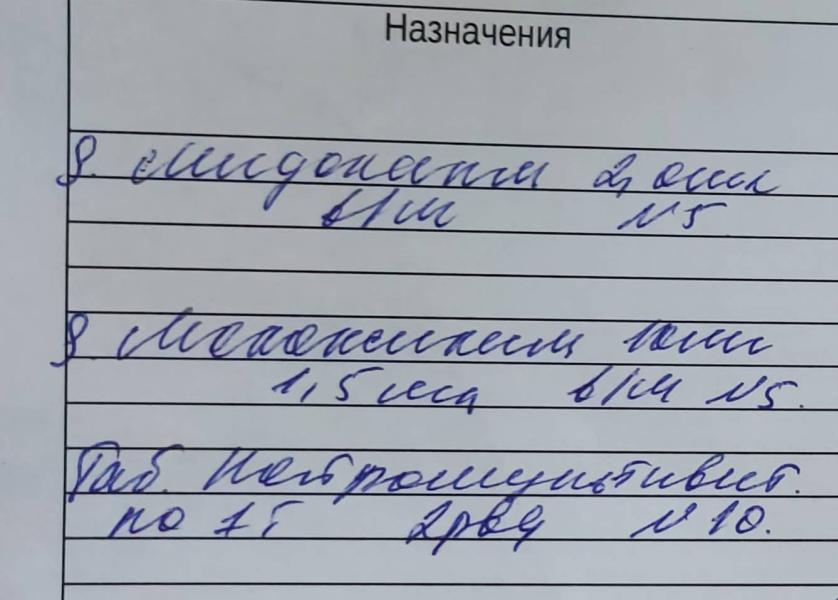 Назначения
S. Мидокалм 2,0 мл
в/м N5
S. Мелоксикам
1,5 мл в/м N5.
Таб. Нейромультивит.
по 1т 2рвд N10.